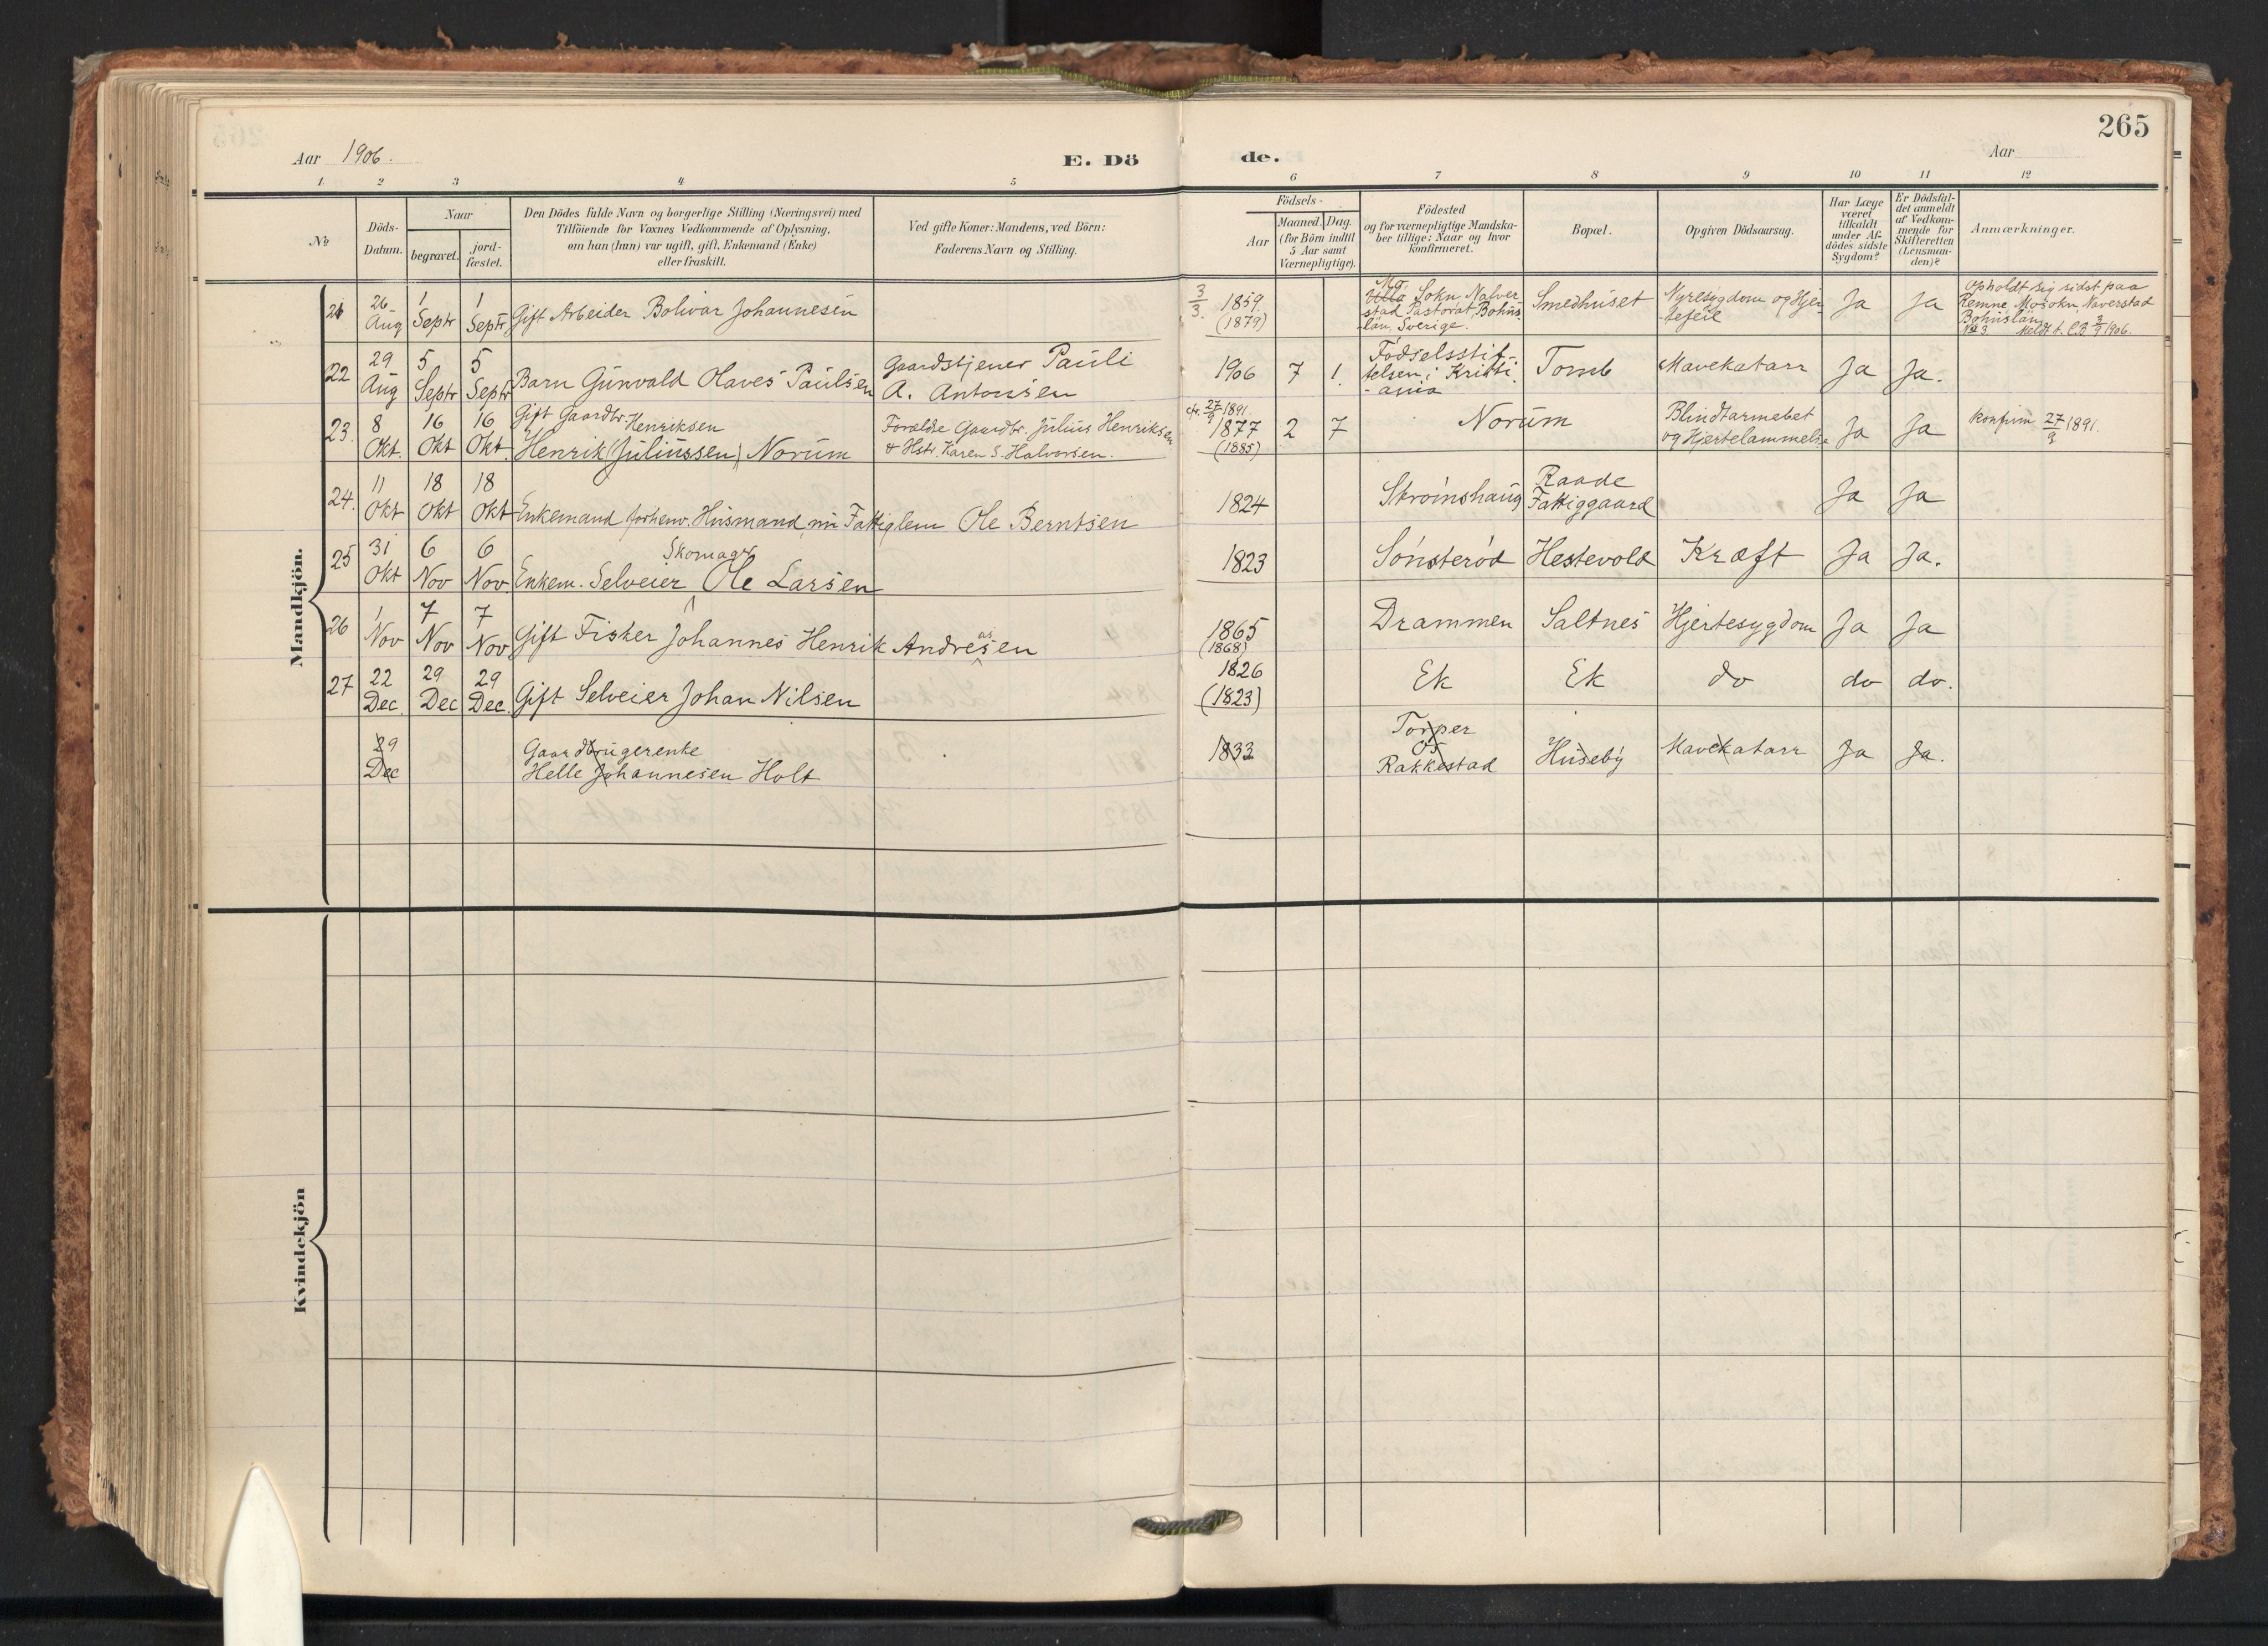 265
Aar 1906.
E. Dö de.
Aar
1 2 3 4 5 6 7 8 9 10 11 12
No
Döds-Datum.
Naar
begravet.
jord-fæstet.
Den Dödes fulde Navn og borgerlige Stilling (Næringsvei) med
Tilföiende for Voxnes Vedkommende af Oplysning,
om han (hun) var ugift, gift, Enkemand (Enke)
eller fraskilt.
Ved gifte Koner: Mandens, ved Börn:
Faderens Navn og Stilling.
Födsels-
Aar
Maaned. Dag.
(for Börn indtil
5 Aar samt
Værnepligtige).
Födested
og for værnepligtige Mandska-
ber tillige: Naar og hvor
konfirmeret.
Bopæl.
Opgiven Dödsaarsag.
Har Læge
været
tilkaldt
under Af-
dödes sidste
Sygdom?
Er Dödsfal-
det anmeldt
af Vedkom-
mende for
Skifteretten
(Lensman-
den)?
Anmærkninger.
Mandkjön.
21 26 Aug 1 Septr 1 Septr Gift Arbeider Bolivar Johannesen
3/3 1859 (1879)
Mo
Ulla Sokn Naver-
stad Pastorat, Bohus-
län, Sverige.
Smedhuset
Nyresygdom og Hjer-
tefeil
Ja Ja
Opholdt sig sidst paa
Remne, Mosokn, Naverstad
Bohuslän
No 3. Meldt t. C.B 3/9 1906.
22 29 Aug 5 Septr 5 Septr Barn Gunvald Olaves Paulsen
Gaardstjener Pauli
A. Antonsen
1906 7 1.
Födselsstif-
telsen i Kristi-
-ania
Tomb Mavekatarr Ja Ja.
23. 8 Okt. 16 Okt 16 Okt. Gift Gaardbr. Henriksen
Henrik (Juliussen) Norum
Forældre Gaardbr. Julius Henriksen
& Hstr. Karen S. Halvorsen.
cfr. 27/9 1891.
1877 2 7
(1885)
Norum
Blindtarmsbet
og Hjertelammelse
Ja Ja
Konfirm 27/9 1891.
24. 11 Okt 18 Okt 18 Okt Enkemand forhenv. Husmand, nu Fattiglem Ole Berntsen
1824 Strömshaug
Raade
Fattiggaard
Ja Ja
25 31 Okt 6 Nov 6 Nov. Enkem. Selveier Skomager Ole Larsen
1823 Sönsteröd Hestevold Kræft Ja Ja.
26 1 Nov 7 Nov 7 Nov Gift Fisker Johannes Henrik Andresen
as
1865
(1868)
Drammen Saltnes Hjertesygdom Ja Ja
27 22 Dec. 29 Dec 29 Dec. Gift Selveier Johan Nilsen
1826
(1823)
Ek Ek do do do.
29 Dec
Gaardbrugerenke
Helle Johannesen Holt
1833
Torper
Os
Rakkestad
Huseby Mavekatarr Ja Ja.
Kvindekjön